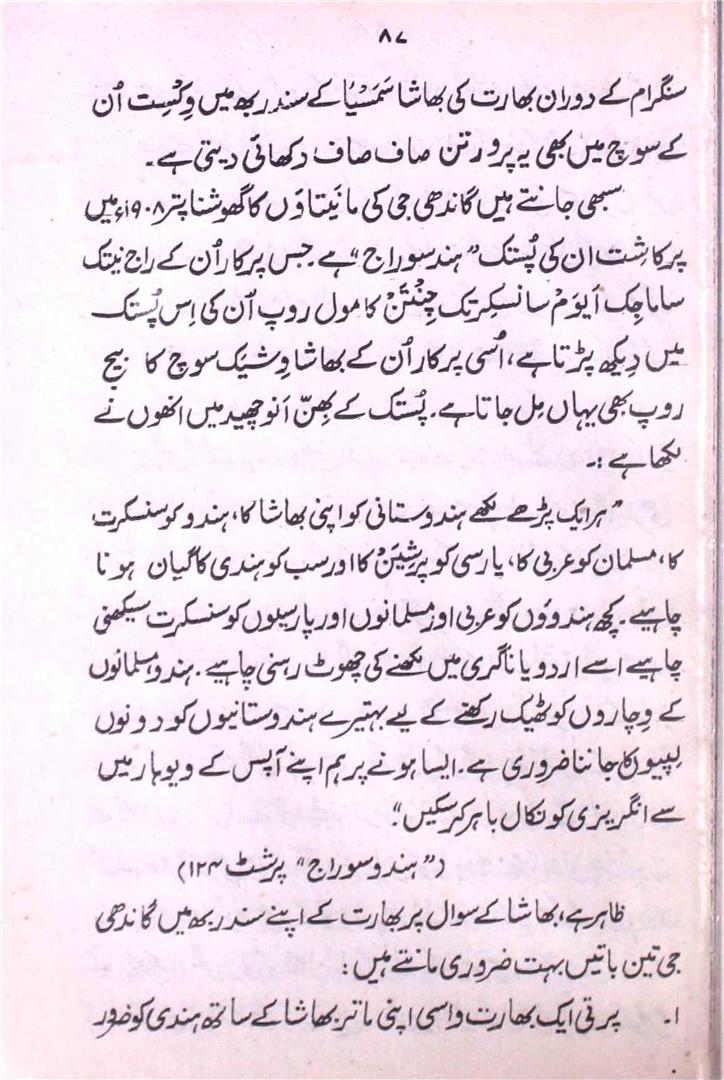 ۸۷
سنگرام کے دوران بھارت کی بھاشا سَمَسْیَا کے سندربھ میں وِکسِت اُن
کے سوچ میں بھی یہ پرورتن صاف صاف دکھائی دیتی ہے۔
سبھی جانتے ہیں گاندھی جی کی مانیتاؤں کا گھوشنا پتر ۱۹۰۸ء میں
پرکاشِت ان کی پُستک ”ہند سوراج“ ہے۔ جس پرکار اُن کے راج نیتک
ساماجِک اَیوَمْ سانسکرتک چِنْتَنْ کا مول روپ اُن کی اِس پُستک
میں دِیکھ پڑتا ہے، اُسی پرکار اُن کے بھاشا وِشیَک سوچ کا بیج
روپ بھی یہاں مِل جاتا ہے۔ پُستک کے بھِنّ اَنوچھید میں انھوں نے
لکھا ہے :۔
”ہر ایک پڑھے لکھے ہندوستانی کو اپنی بھاشا کا، ہندو کو سنسکرت
کا، مسلمان کو عربی کا، پارسی کو پرشِیَنْ کا اور سب کو ہندی کا گیان ہونا
چاہیے۔ کچھ ہندوؤں کو عربی اور مسلمانوں اور پارسیوں کو سنسکرت سیکھنی
چاہیے اسے اردو یا ناگری میں لکھنے کی چھوٹ رہنی چاہیے۔ ہندو مسلمانوں
کے وِچاروں کو ٹھیک رکھنے کے لیے بہتیرے ہندوستانیوں کو دونوں
لِپیوں کا جاننا ضروری ہے۔ ایسا ہونے پر ہم اپنے آپس کے ویوہار میں
سے انگریزی کو نکال باہر کر سکیں“۔
(”ہندو سوراج“ پرشٹ ۱۲۴)
ظاہر ہے، بھاشا کے سوال پر بھارت کے اپنے سندربھ میں گاندھی
جی تین باتیں بہت ضروری مانتے ہیں :
۱۔ پرتی ایک بھارت واسی اپنی ماتر بھاشا کے ساتھ ہندی کو ضرور